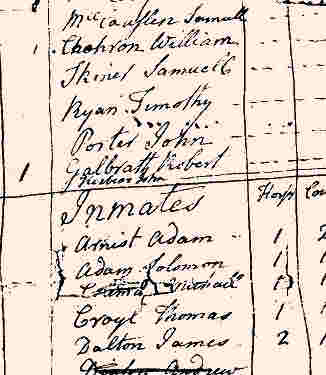 McCauslin Samuell
1 Chohron William
Skiner Samuell
Ryan Timothy
Porter John
1 Galbrath Robert
John
Inmates Hors Cow
Arnist Adam 1 2
Adam Solomon 1 1
Michael 1
Croyl Thomas 1 1
Dalton James 2 1
Andrew